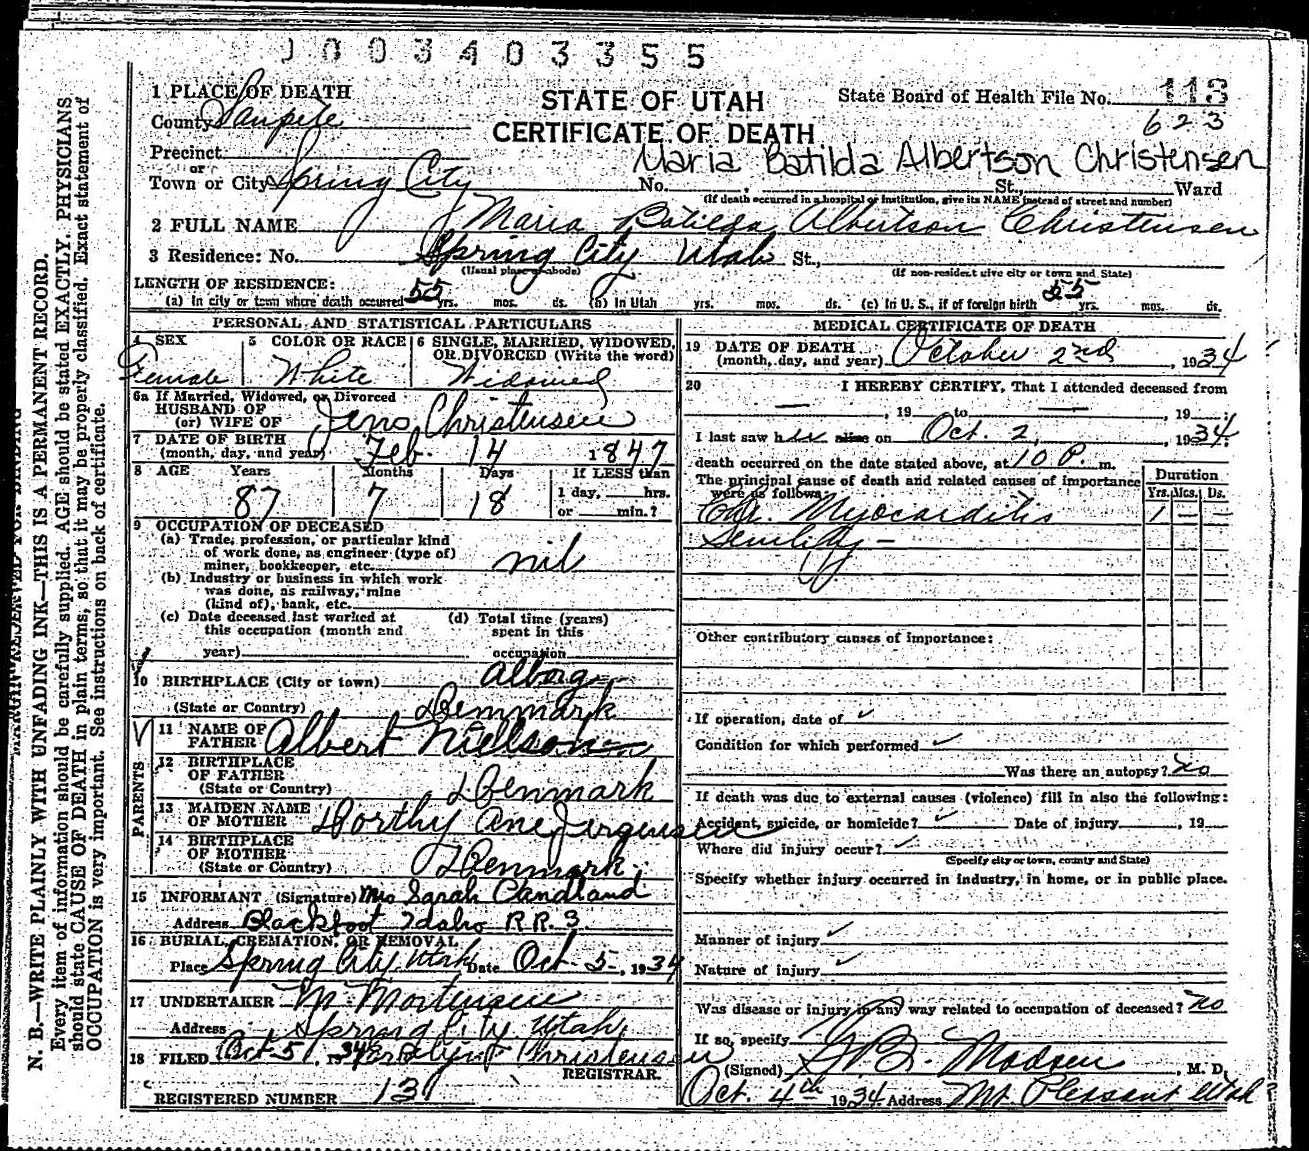 J 0 0 3 4 0 3 3 5 5
1 PLACE OF DEATH
County Sanpete
Precinct
or
Town or City Spring City
STATE OF UTAH
CERTIFICATE OF DEATH
State Board of Health File No. 113
623
Maria Batilda Albertson Christensen
No. , St., Ward
(If death occurred in a hospital or institution, give its NAME instead of street and number)
2 FULL NAME Maria Batilda Albertson Christensen
3 Residence: No. Spring City Utah St.,
(Usual place of abode) (If non-resident give city or town and State)
LENGTH OF RESIDENCE:
(a) In city or town where death occurred 55 yrs. mos. ds. (b) In Utah yrs. mos. ds. (c) In U. S., if of foreign birth 55 yrs. mos. ds.
PERSONAL AND STATISTICAL PARTICULARS
4 SEX
Female
5 COLOR OR RACE
White
6 SINGLE, MARRIED, WIDOWED, OR DIVORCED (Write the word)
Widowed
6a If Married, Widowed, or Divorced
HUSBAND OF
(or) WIFE OF Jens Christensen
7 DATE OF BIRTH
(month, day, and year) Feb. 14 1847
8 AGE Years Months Days If LESS than
87 7 18 1 day, hrs.
or min.?
9 OCCUPATION OF DECEASED
(a) Trade, profession, or particular kind
of work done, as engineer (type of)
miner, bookkeeper, etc. nil
(b) Industry or business in which work
was done, as railway, mine
(kind of), bank, etc.
(c) Date deceased last worked at
this occupation (month and
year)
(d) Total time (years)
spent in this
occupation
10 BIRTHPLACE (City or town) Alborg
(State or Country) Denmark
PARENTS
11 NAME OF
FATHER Albert Nielson
12 BIRTHPLACE
OF FATHER
(State or Country) Denmark
13 MAIDEN NAME
OF MOTHER Dorthy Ane Jirgensen
14 BIRTHPLACE
OF MOTHER
(State or Country) Denmark
15 INFORMANT (Signature) Mrs Sarah Candland
Address Blackfoot Idaho R.R. 3.
16 BURIAL, CREMATION, OR REMOVAL
Place Spring City Utah Date Oct 5-, 1934
17 UNDERTAKER M Mortensen
Address Spring City Utah
18 FILED Oct 5, 1934 Christensen
REGISTRAR.
REGISTERED NUMBER 13
MEDICAL CERTIFICATE OF DEATH
19 DATE OF DEATH
(month, day, and year) October 2nd, 1934
20 I HEREBY CERTIFY, That I attended deceased from
— , 19 to — , 19 .
I last saw her alive on Oct. 2, 1934.
death occurred on the date stated above, at 10 P. m.
The principal cause of death and related causes of importance
were as follows:
Duration
Yrs. Mos. Ds.
Chr. Myocarditis 1 — —
Senility -
Other contributory causes of importance:
If operation, date of ✓
Condition for which performed ✓
Was there an autopsy? no
If death was due to external causes (violence) fill in also the following:
Accident, suicide, or homicide? ✓ Date of injury , 19
Where did injury occur? ✓
(Specify city or town, county and State)
Specify whether injury occurred in industry, in home, or in public place.
Manner of injury ✓
Nature of injury ✓
Was disease or injury in any way related to occupation of deceased? no
If so, specify
(Signed) Madsen, M. D.
Oct. 4th 1934 Address Mt Pleasant Utah
N. B.—WRITE PLAINLY WITH UNFADING INK—THIS IS A PERMANENT RECORD.
Every item of information should be carefully supplied. AGE should be stated EXACTLY. PHYSICIANS
should state CAUSE OF DEATH in plain terms, so that it may be properly classified. Exact statement of
OCCUPATION is very important. See instructions on back of certificate.